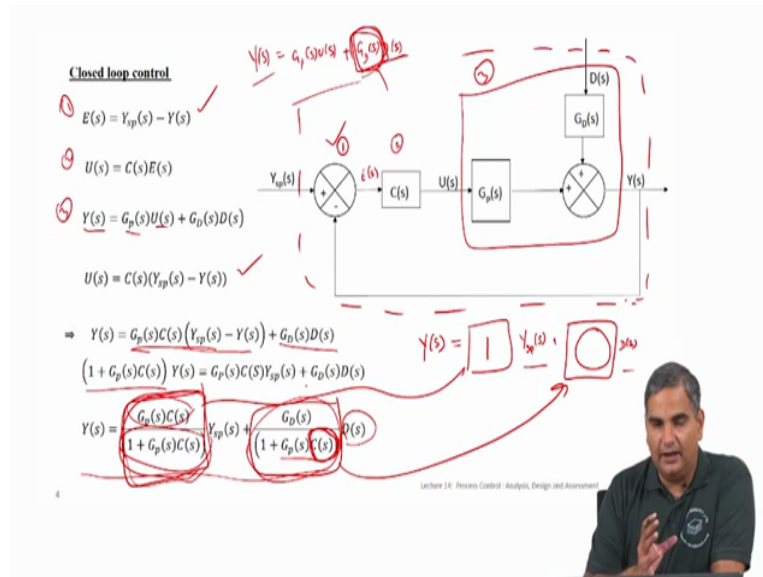 Y(s) = Gp(s)U(s) + GD(s)D(s)
Closed loop control
① E(s) = Ysp(s) − Y(s) ✓
② U(s) = C(s)E(s)
③ Y(s) = Gp(s)U(s) + GD(s)D(s)
U(s) = C(s)(Ysp(s) − Y(s)) ✓
⇒ Y(s) = Gp(s)C(s)(Ysp(s) − Y(s)) + GD(s)D(s)
(1 + Gp(s)C(s)) Y(s) = GP(s)C(S)Ysp(s) + GD(s)D(s)
Y(s) = Gp(s)C(s) / (1 + Gp(s)C(s)) Ysp(s) + GD(s) / (1 + Gp(s)C(s)) D(s)
③
D(s)
GD(s)
✓ ①
②
Ysp(s)
+
-
E(s)
C(s)
U(s)
Gp(s)
+
+
Y(s)
Y(s) = 1 Ysp(s) + 0 D(s)
4
Lecture 14: Process Control : Analysis, Design and Assessment